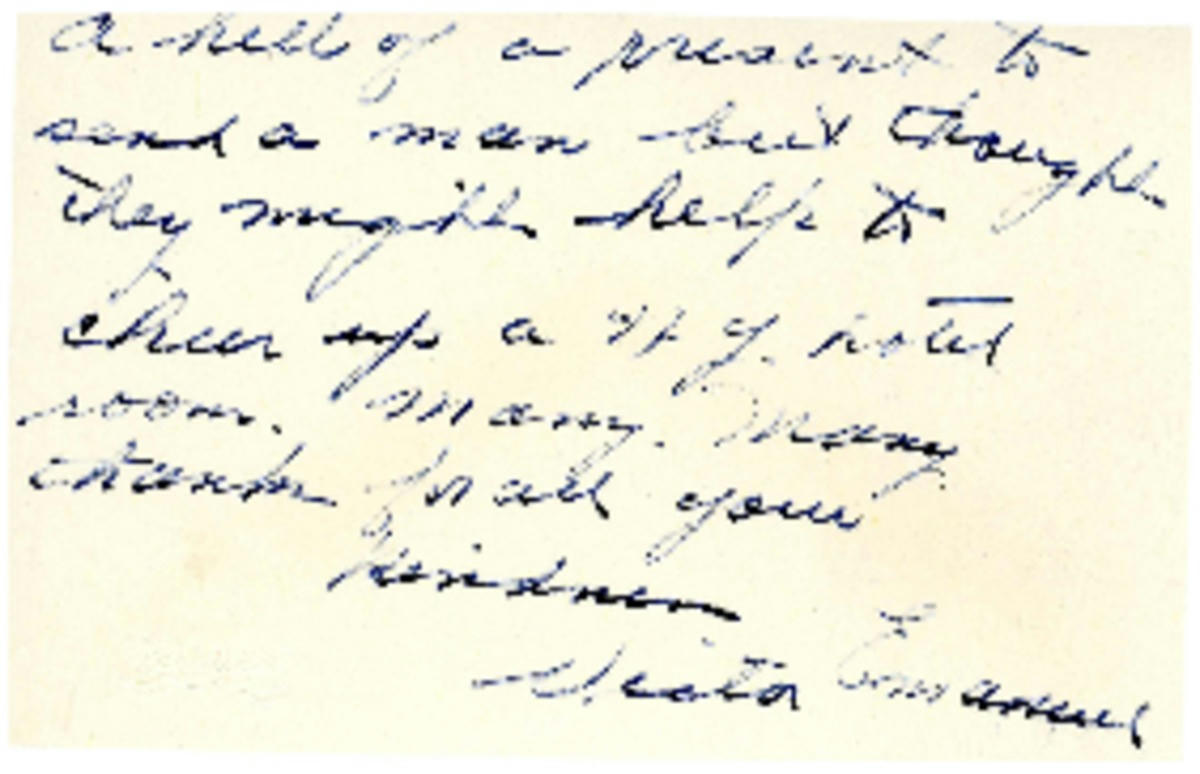 A hell of a present to
send a man but thought
they might help to
cheer up a N.Y. hotel
room. Many, Many
thanks for all your
kindness
Victor Emanuel